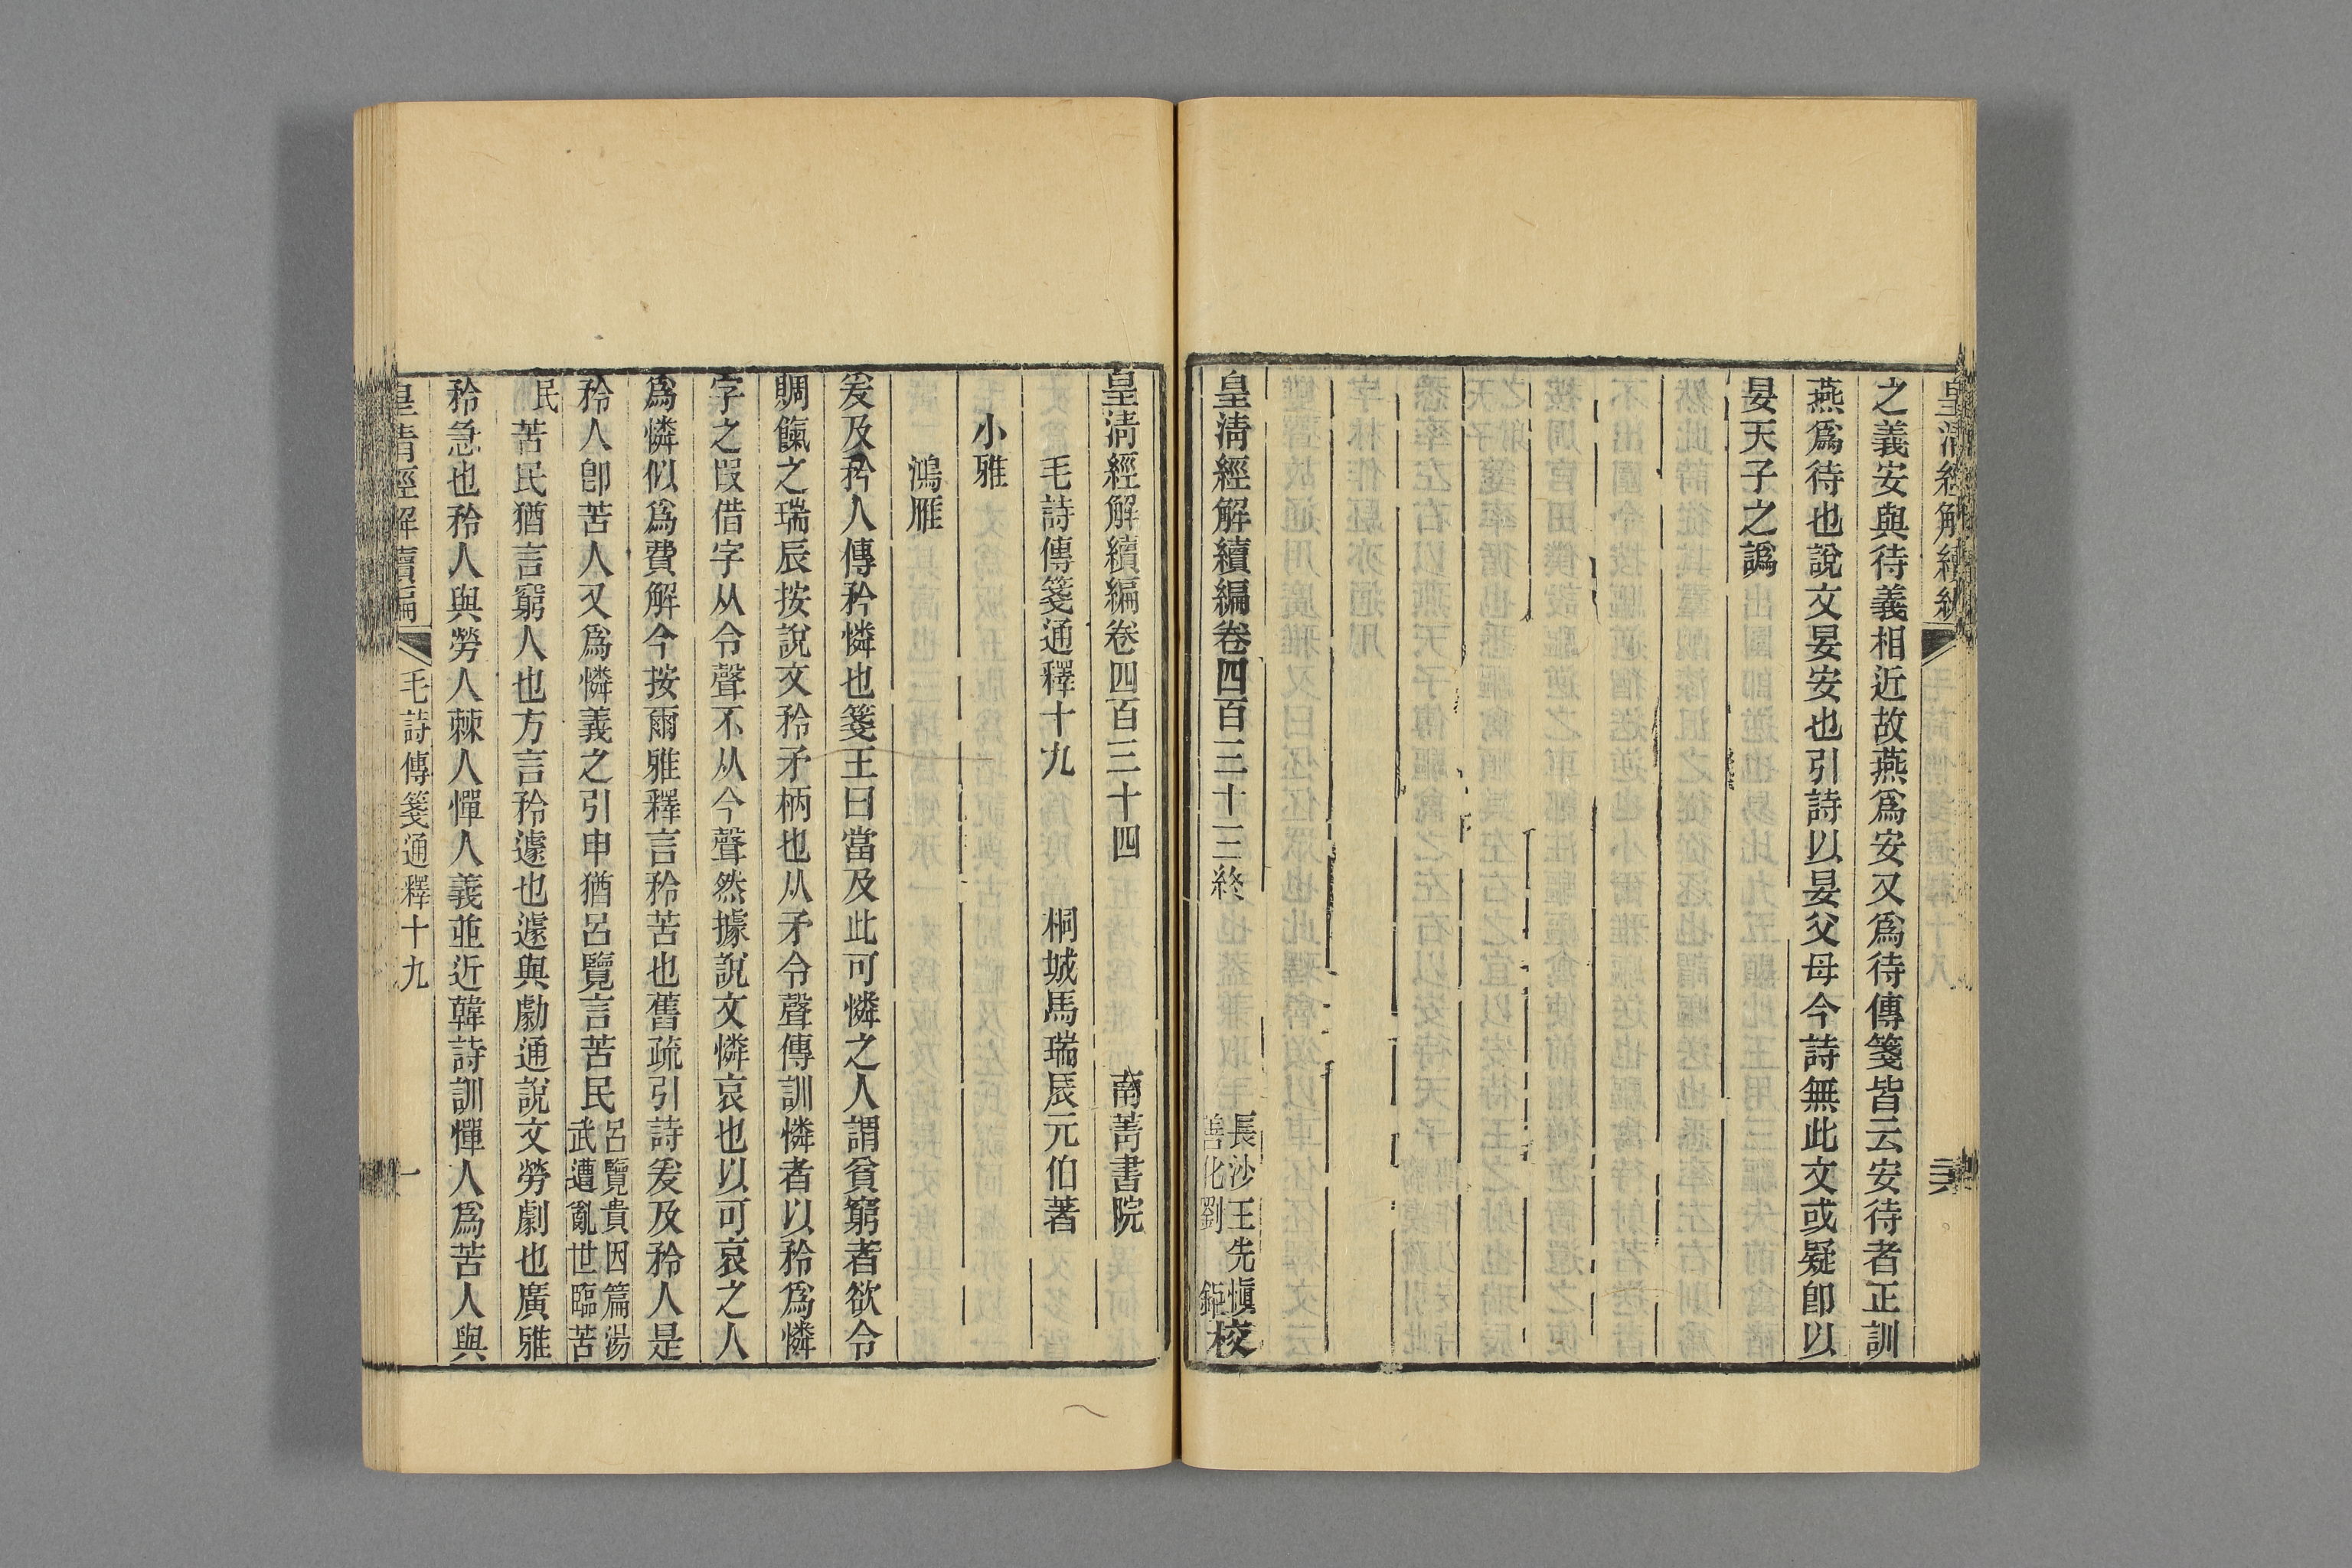 之義安與待義相近故燕爲安又爲待傳箋皆云安待者正訓
燕爲待也說文晏安也引詩以晏父母今詩無此文或疑卽以
晏天子之譌
皇淸經解續編卷四百三十三終
長沙王先愼
善化劉 鉅校
皇淸經解續編卷四百三十四 南菁書院
毛詩傳箋通釋十九 桐城馬瑞辰元伯著
小雅
鴻雁
爰及矜人傳矜憐也箋王曰當及此可憐之人謂貧窮者欲令
賙餼之瑞辰按說文矜矛柄也从矛令聲傳訓憐者以矜爲憐
字之叚借字从令聲不从今聲然據說文憐哀也以可哀之人
爲憐似爲費解今按爾雅釋言矜苦也舊疏引詩爰及矜人是
矜人卽苦人又爲憐義之引申猶呂覽言苦民
呂覽貴因篇湯
武遭亂世臨苦
民
苦民猶言窮人也方言矜遽也遽與勮通說文勞劇也廣雅
矜急也矜人與勞人棘人憚人義並近韓詩訓憚人爲苦人與
皇淸經解續編 毛詩傳箋通釋十九 一